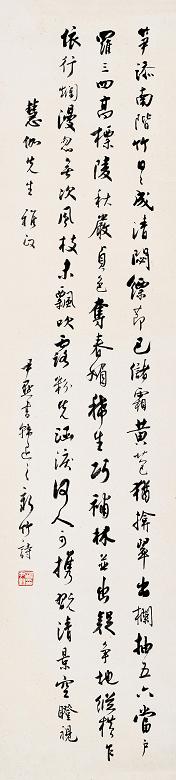 筍添南階竹日日成清閟縹節已儲霜黃苞猶揜翠出欄抽五六當戶
羅三四高標陵秋嚴貞色奪春媚稀生巧補林並出疑爭地縱橫乍
依行爛漫忽無次風枝未飄吹露粉先涵淚何人可攜翫清景空瞪視
慧伽先生雅政
尹默書韓退之新竹詩